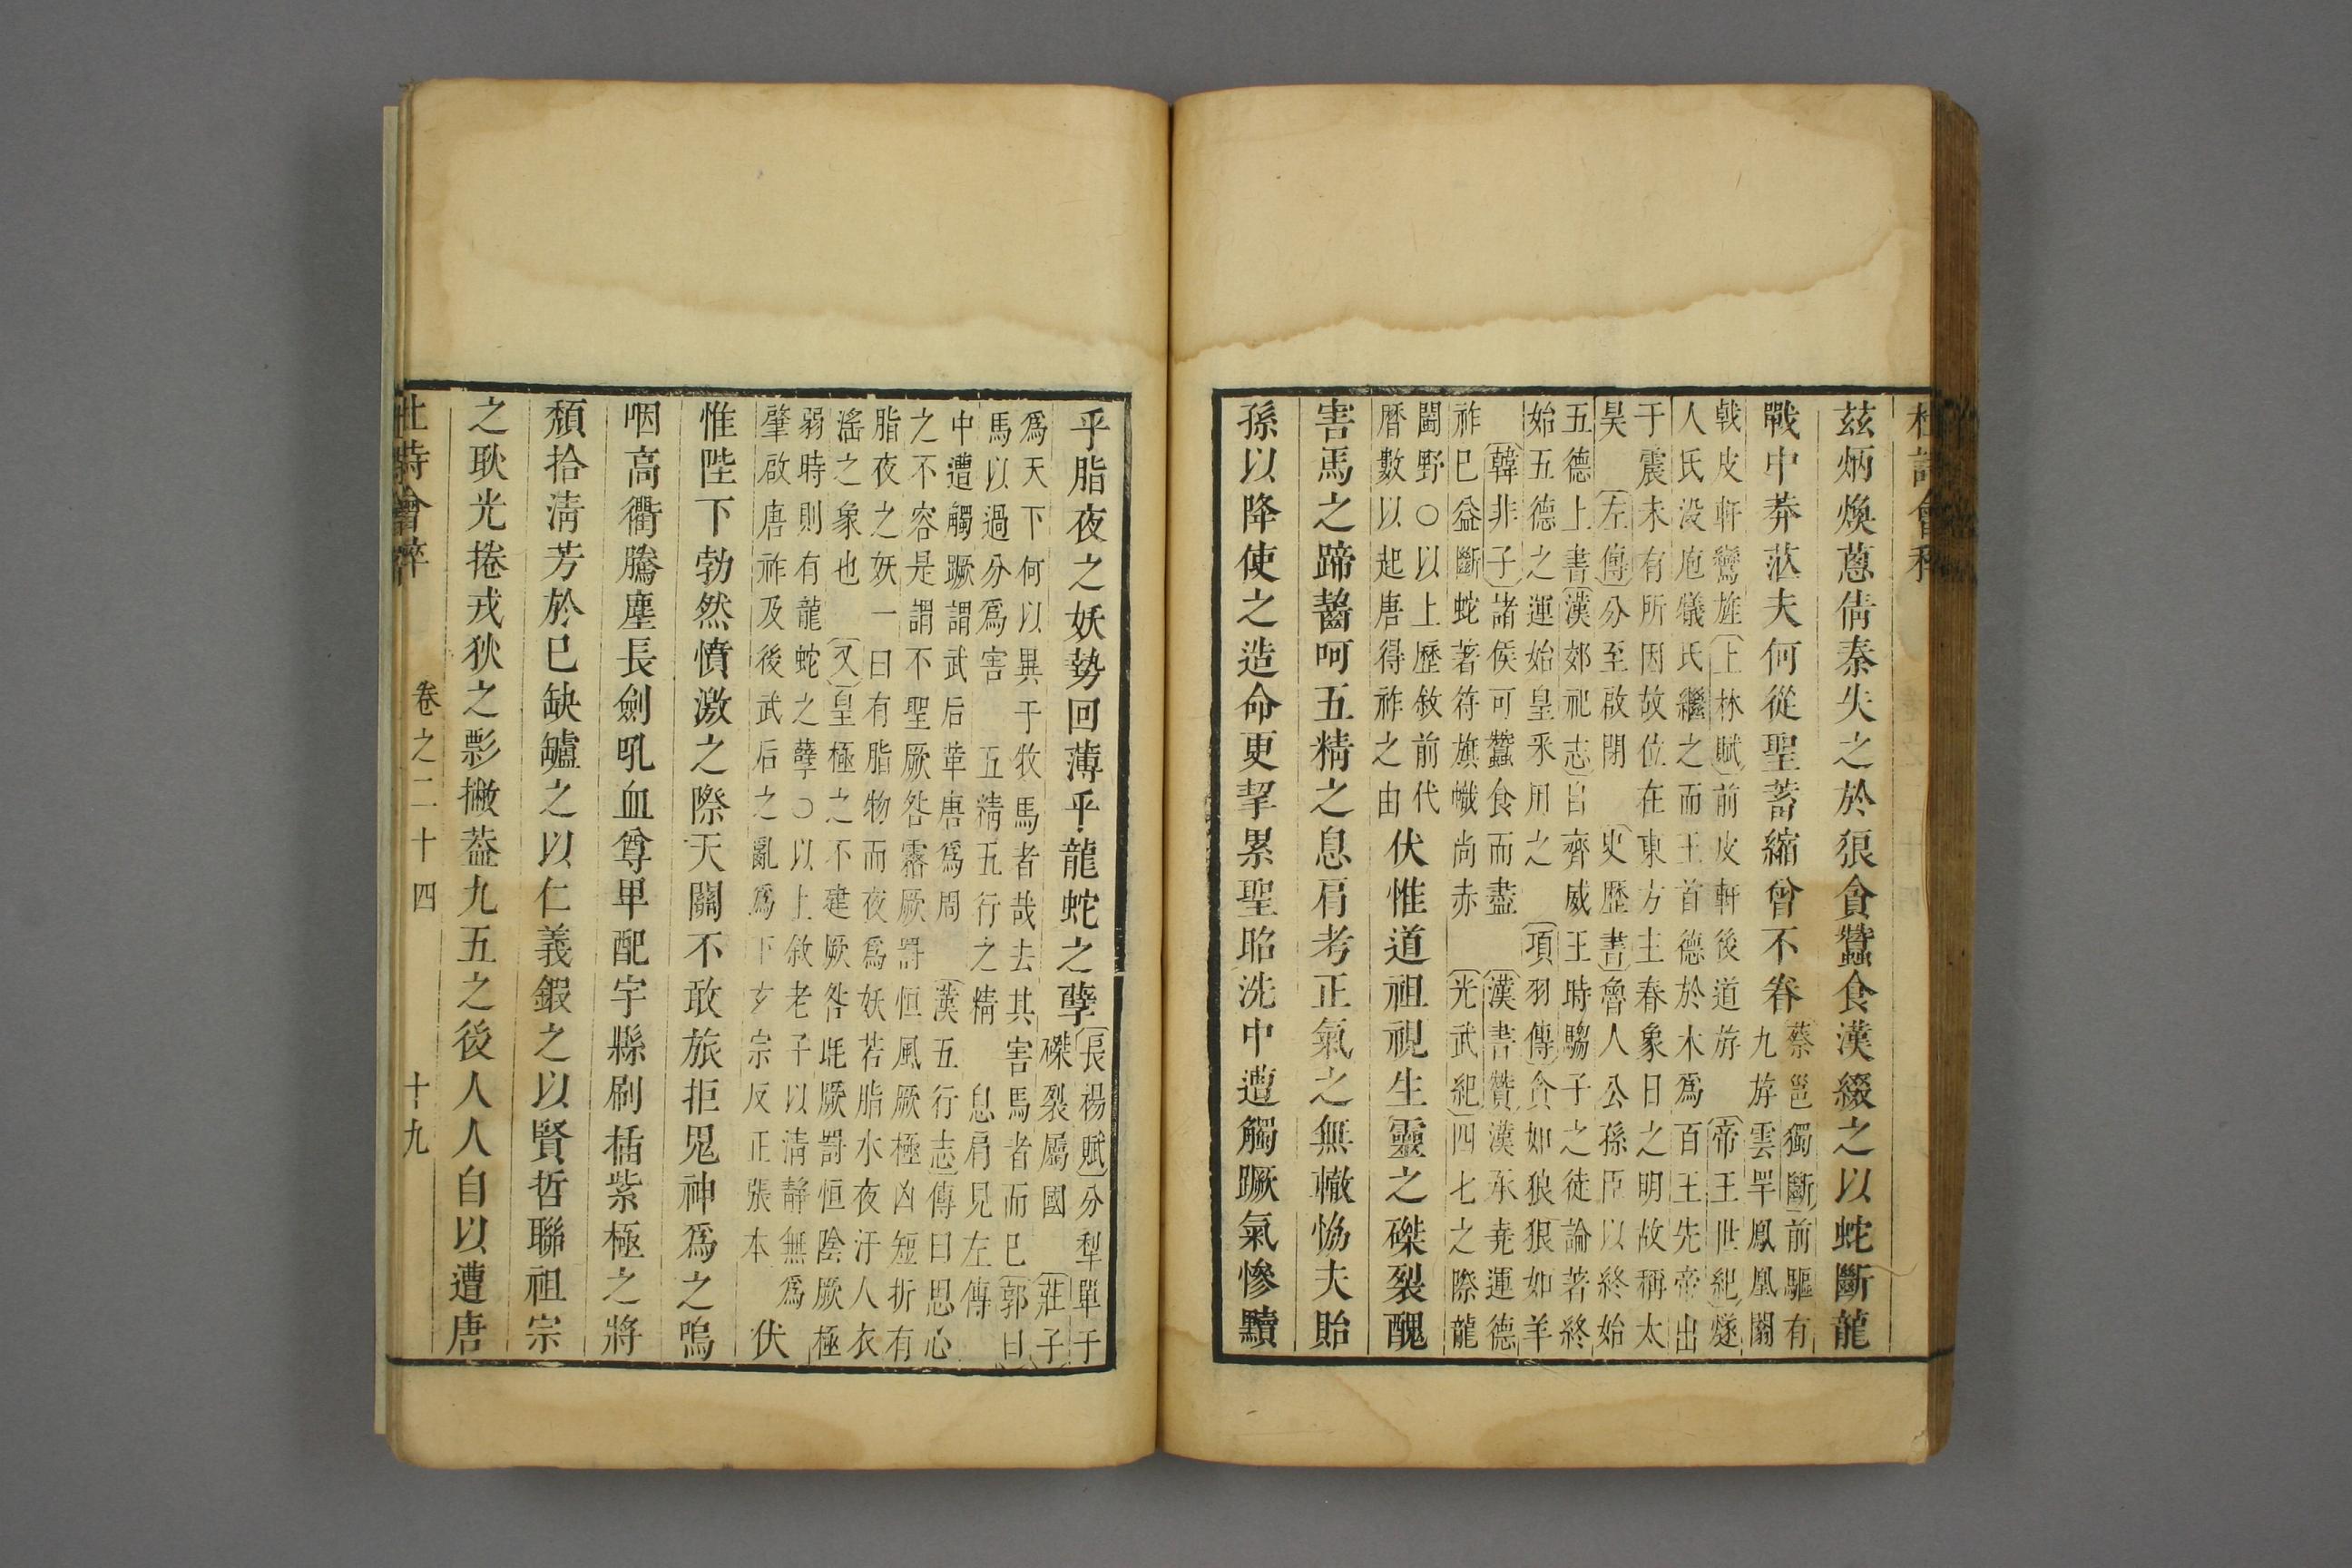 茲炳煥蔥倩秦失之於狼貪蠶食漢綴之以蛇斷龍
戰中莽茫夫何從聖蓄縮曾不眷
蔡邕獨斷前驅有
九斿雲罕鳳凰闟
戟皮軒鸞旌上林賦前皮軒後道斿帝王世紀燧
人氏没庖犧氏繼之而王首德於木爲百王先帝出
于震未有所因故位在東方主春象日之明故稱太
昊左傳分至啟閉史歷書魯人公孫臣以終始
五德上書漢郊祀志自齊威王時騶子之徒論著終
始五德之運始皇釆用之項羽傳貪如狼狠如羊
韓非子諸侯可蠶食而盡漢書贊漢承堯運德
祚已益斷蛇著符旗幟尚赤光武紀四七之際龍
鬬野○以上歷敘前代
曆數以起唐得祚之由
伏惟道祖視生靈之磔裂醜
害馬之蹄齧呵五精之息肩考正氣之無轍協夫貽
孫以降使之造命更挈累聖昭洗中遭觸蹶氣慘黷
乎脂夜之妖勢回薄乎龍蛇之孽
長楊賦分犁單于
磔裂屬國莊子
爲天下何以異于牧馬者哉去其害馬者而已郭曰
馬以過分爲害五精五行之精息肩見左傳
中遭觸蹶謂武后革唐爲周漢五行志傳曰思心
之不容是謂不聖厥咎霿厥罰恒風厥極凶短折有
脂夜之妖一曰有脂物而夜爲妖若脂水夜汙人衣
滛之象也又皇極之不建厥咎眊厥罰恒陰厥極
弱時則有龍蛇之孽○以上敘老子以清靜無爲
肇啟唐祚及後武后之亂爲下玄宗反正張本
伏
惟陛下勃然憤激之際天闕不敢旅拒鬼神爲之嗚
咽高衢騰塵長劍吼血尊卑配宇縣刷揷紫極之將
頹拾清芳於已缺罏之以仁義鍜之以賢哲聯祖宗
之耿光捲戎狄之影撇葢九五之後人人自以遭唐
卷之二十四
十九